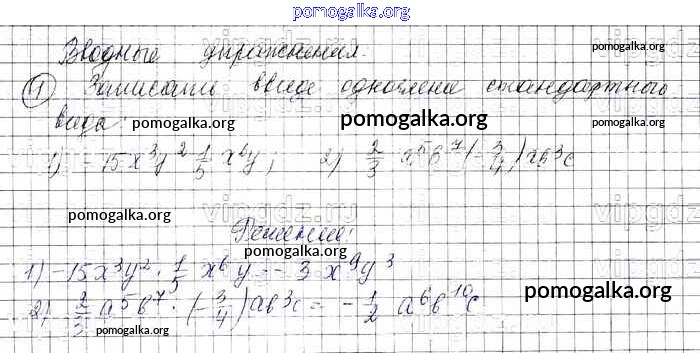 pomogalka.org
Вводные упражнения.
pomogalka.org
1 Записать ввиде одночлена стандартного
вида:
pomogalka.org pomogalka.org pomogalka.org
1) -15x³y² 1/5 x⁶y, 2) 2/3 a⁵b⁷(-3/4)ab³c
pomogalka.org
vipgdz.ru
Решение:
pomogalka.org
1) -15x³y² · 1/5 x⁶y = -3x⁹y³
2) 2/3 a⁵b⁷ · (-3/4)ab³c = -1/2 a⁶b¹⁰c
pomogalka.org pomogalka.org